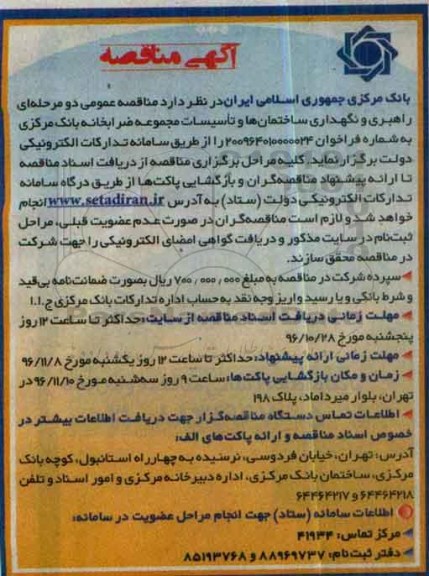 آگهی مناقصه
بانک مرکزی جمهوری اسلامی ایران در نظر دارد مناقصه عمومی دو مرحله‌ای
راهبری و نگهداری ساختمان‌ها و تأسیسات مجموعه ضرابخانه بانک مرکزی
به شماره فراخوان ۲۰۰۹۶۴۰۱۰۰۰۰۰۲۴ را از طریق سامانه تدارکات الکترونیکی
دولت برگزار نماید. کلیه مراحل برگزاری مناقصه از دریافت اسناد مناقصه
تا ارائه پیشنهاد مناقصه‌گران و بازگشایی پاکت‌ها از طریق درگاه سامانه
تدارکات الکترونیکی دولت (ستاد) به آدرس www.setadiran.ir انجام
خواهد شد و لازم است مناقصه‌گران در صورت عدم عضویت قبلی، مراحل
ثبت‌نام در سایت مذکور و دریافت گواهی امضای الکترونیکی را جهت شرکت
در مناقصه محقق سازند.
سپرده شرکت در مناقصه به مبلغ ۷۰۰٫۰۰۰٫۰۰۰ ریال بصورت ضمانت‌نامه بی‌قید
و شرط بانکی و یا رسید واریز وجه نقد به حساب اداره تدارکات بانک مرکزی ج.ا.ا
مهلت زمانی دریافت اسناد مناقصه از سایت: حداکثر تا ساعت ۱۲ روز
پنجشنبه مورخ ۹۶/۱۰/۲۸
مهلت زمانی ارائه پیشنهاد: حداکثر تا ساعت ۱۲ روز یکشنبه مورخ ۹۶/۱۱/۸
زمان و مکان بازگشایی پاکت‌ها: ساعت ۹ روز سه‌شنبه مورخ ۹۶/۱۱/۱۰ در
تهران، بلوار میرداماد، پلاک ۱۹۸
اطلاعات تماس دستگاه مناقصه‌گزار جهت دریافت اطلاعات بیشتر در
خصوص اسناد مناقصه و ارائه پاکت‌های الف:
آدرس: تهران، خیابان فردوسی، نرسیده به چهارراه استانبول، کوچه بانک
مرکزی، ساختمان بانک مرکزی، اداره دبیرخانه مرکزی و امور اسناد و تلفن
۶۴۴۶۴۲۱۸ و ۶۴۴۶۴۲۱۷
اطلاعات سامانه (ستاد) جهت انجام مراحل عضویت در سامانه:
مرکز تماس: ۴۱۹۳۴
دفتر ثبت‌نام: ۸۸۹۶۹۷۳۷ و ۸۵۱۹۳۷۶۸